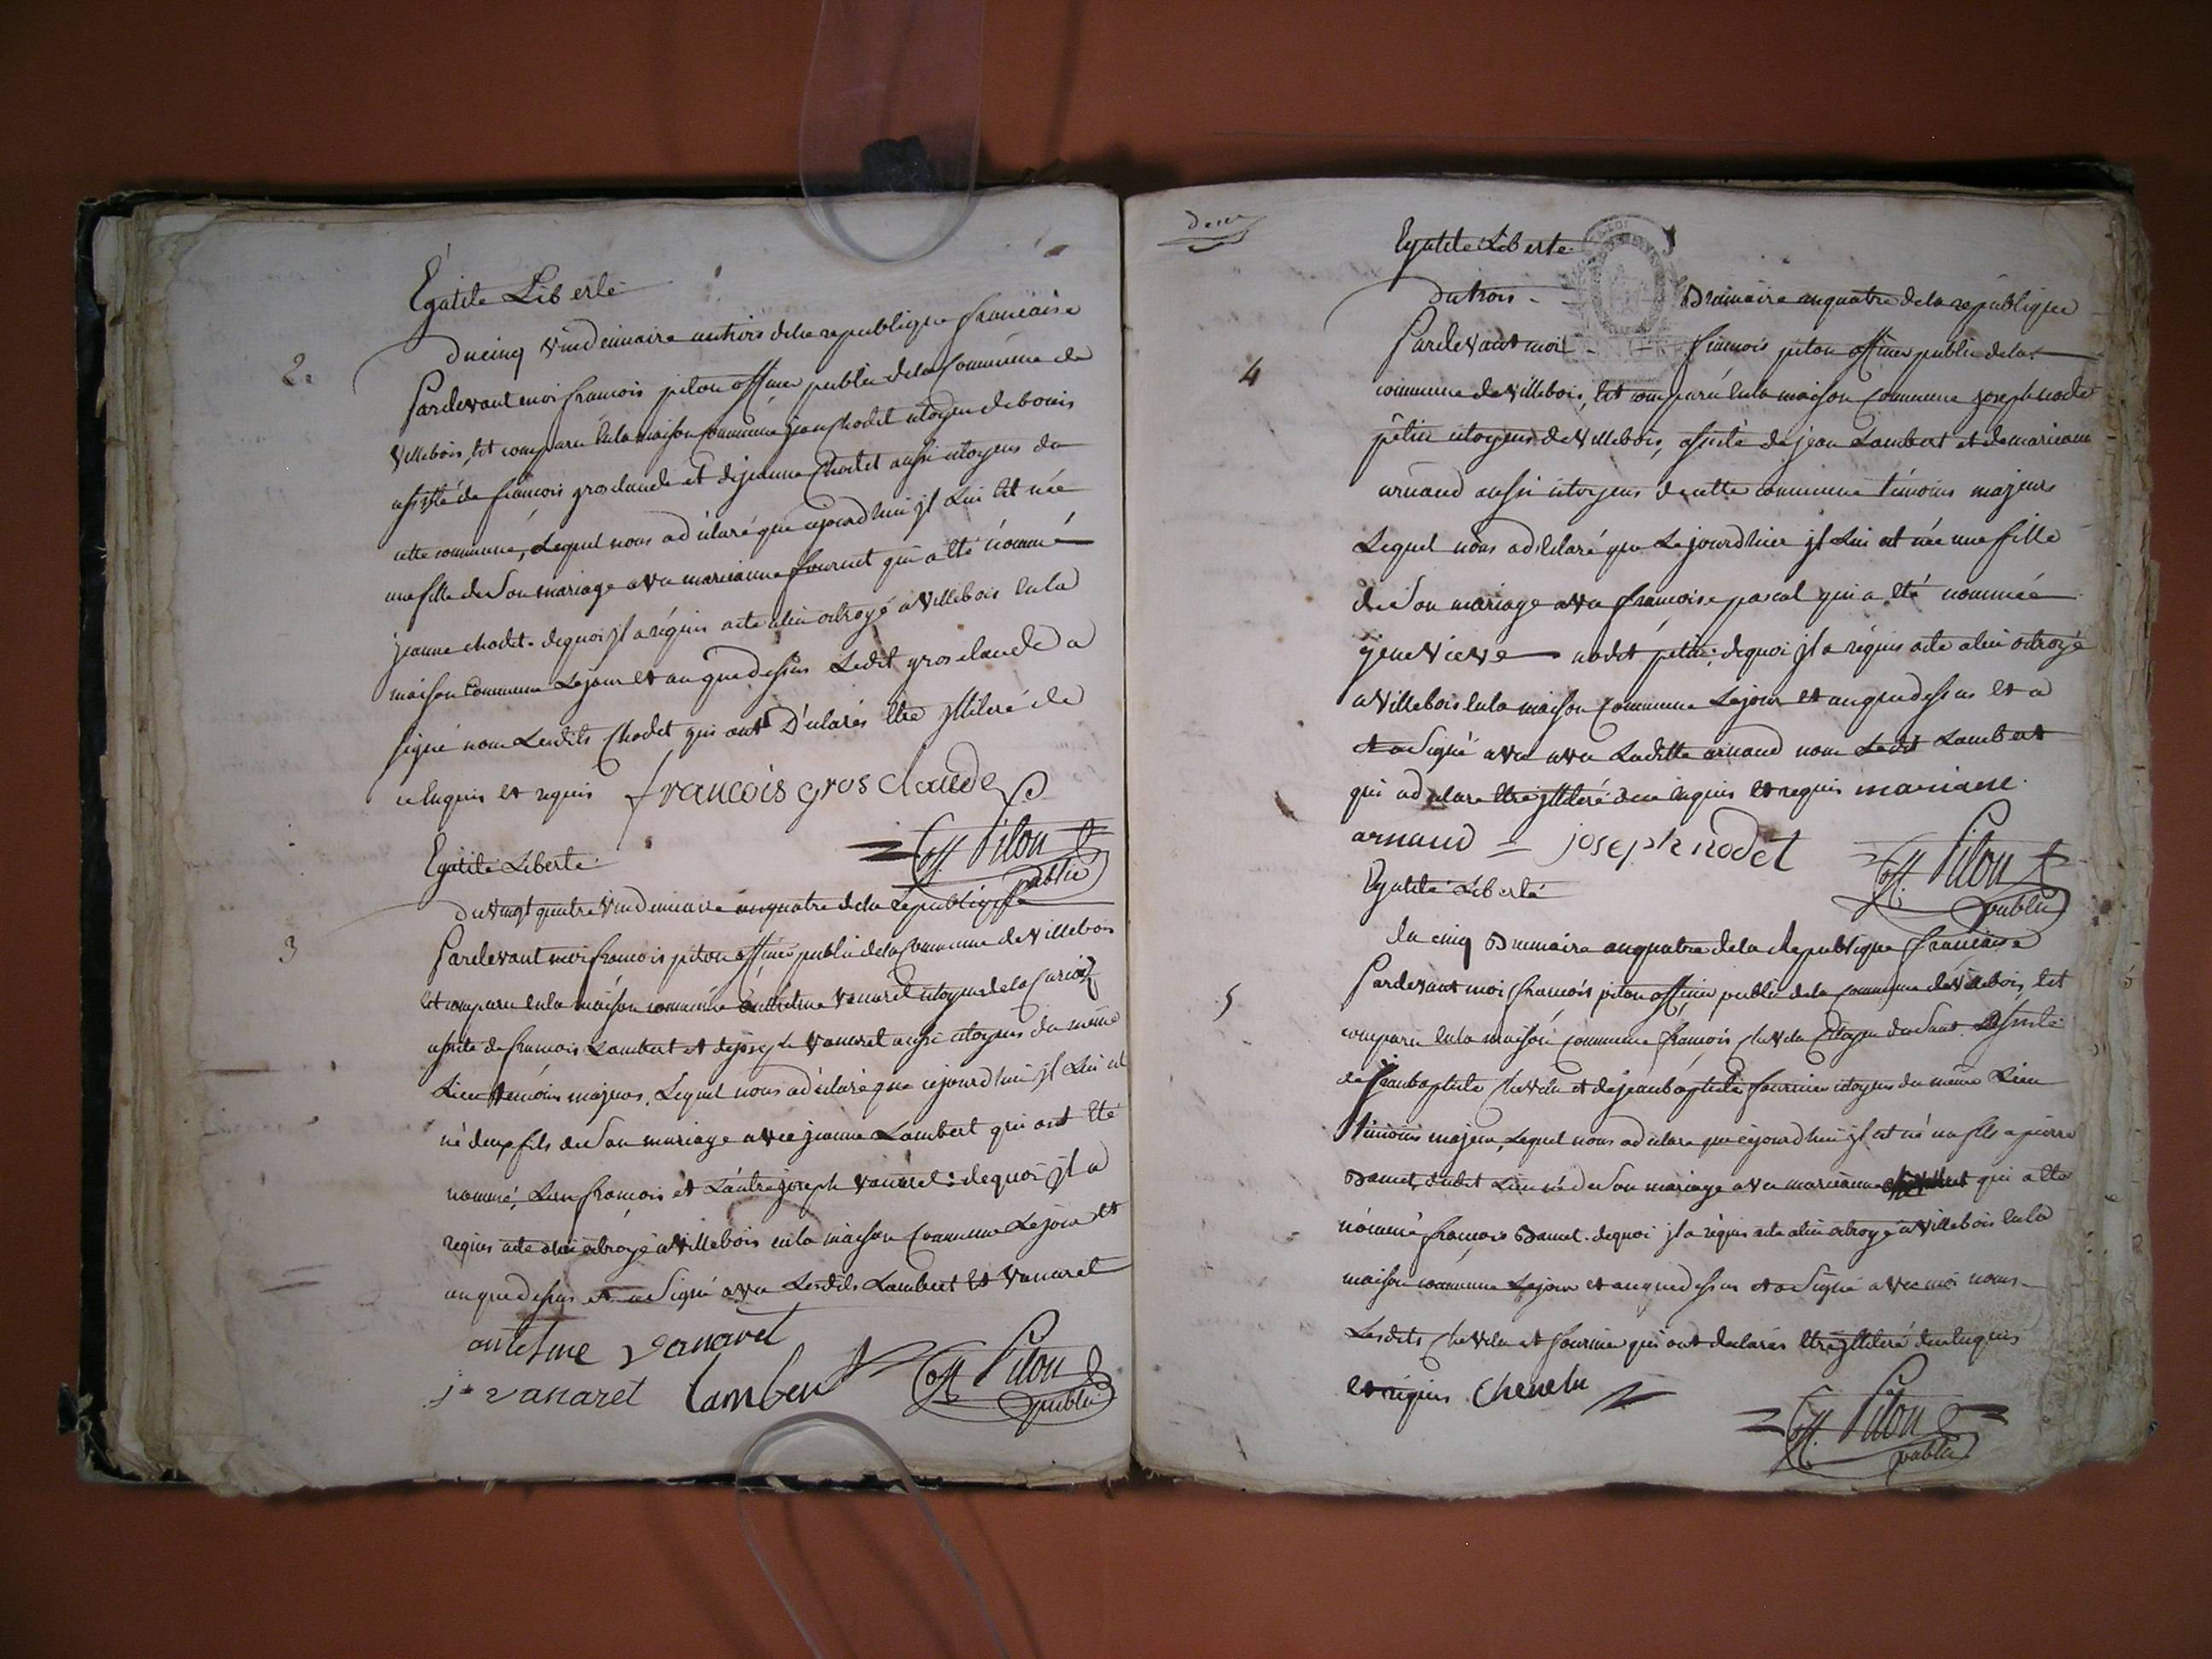 Egatité Liberté
2.
du cinq vindemiaire an trois de la republique francaise
Pardevant moi francois piton officier public de la Commune de
Villebois, Est comparu En la maison Commune jean Chodet citoyen de bouis
assisté de francois grosclaude et de jeanne Chodet aussi citoyens de
cette commune, Lequel nous a déclaré que cejourdhui jl Lui Est née
une fille de Son mariage avec marianne fournet qui a Eté nommé
jeanne chodet. de quoi jl a réquis acte a lui octroyé a Villebois En la
maison Commune Le jour et an que dessus Ledit grosclaude a
signé non Lesdits Chodet qui ont Déclarés Etre jlliteré de
ce Enquis et requis francois gros claude
off. Piton public
Egatité Liberté
3
du vingt quatre vindemiaire an quatre de la Republique
Pardevant moi francois piton officier public de la Commune de Villebois
Est comparu En la maison commune anthelme Vanaret citoyen de la
assisté de francois Lambert et de joseph Vanaret aussi citoyens du même
Lieu témoins majeurs, Lequel nous a déclaré que cejourdhui jl Lui est
né deux fils de Son mariage avec jeanne Lambert qui ont Eté
nommé, L'un francois et L'autre joseph Vanaret: de quoi jl a
requis acte a lui octroyé a Villebois en la maison Commune Le jour et
an que dessus et a Signé avec Lesdits Lambert Et Vanaret
antelme vanaret
j. vanaret Lambert off. Piton public
Egatité Liberté
4
du trois Brumaire an quatre de la république
Pardevant moi francois piton officier public de la
commune de Villebois, Est comparu En la maison Commune joseph nodet
petin citoyens de Villebois, assisté de jean Lambert et de marianne
arnaud aussi citoyens de cette commune témoins majeurs
Lequel nous a déclaré que Cejourdhui jl Lui est née une fille
de Son mariage avec francoise pascal qui a Eté nommée
jeneVieve nodet petin; de quoi jl a réquis acte a lui octroyé
a Villebois En la maison Commune Le jour et an que dessus et a
et a Signé avec avec Laditte arnaud non Ledit Lambert
qui a déclaré Etre jlliteré de ce Enquis et requis mariane
arnaud joseph nodet
off. Piton public
Egatité Liberté
5
du cinq Brumaire an quatre de la Republique francaise
Pardevant moi francois piton officier public de la commune de Villebois, Est
comparu En la maison Commune francois Chevelu Citoyen du Saut assisté
de jean baptiste Chevelu et de jean baptiste fournier citoyens du même Lieu
témoins majeurs, Lequel nous a déclaré que cejourdhui jl est né un fils a pierre
Bamet dudit Lieu né de Son mariage avec marianne qui a Eté
nommé francois Bamet. de quoi jl a réquis acte a lui octroyé a Villebois En la
maison commune Le jour et an que dessus et a Signé avec moi nons
Lesdits Chevelu et fournier qui ont déclarés Etre jlliteré de ce Enquis
et requis Chevelu
off. Piton public